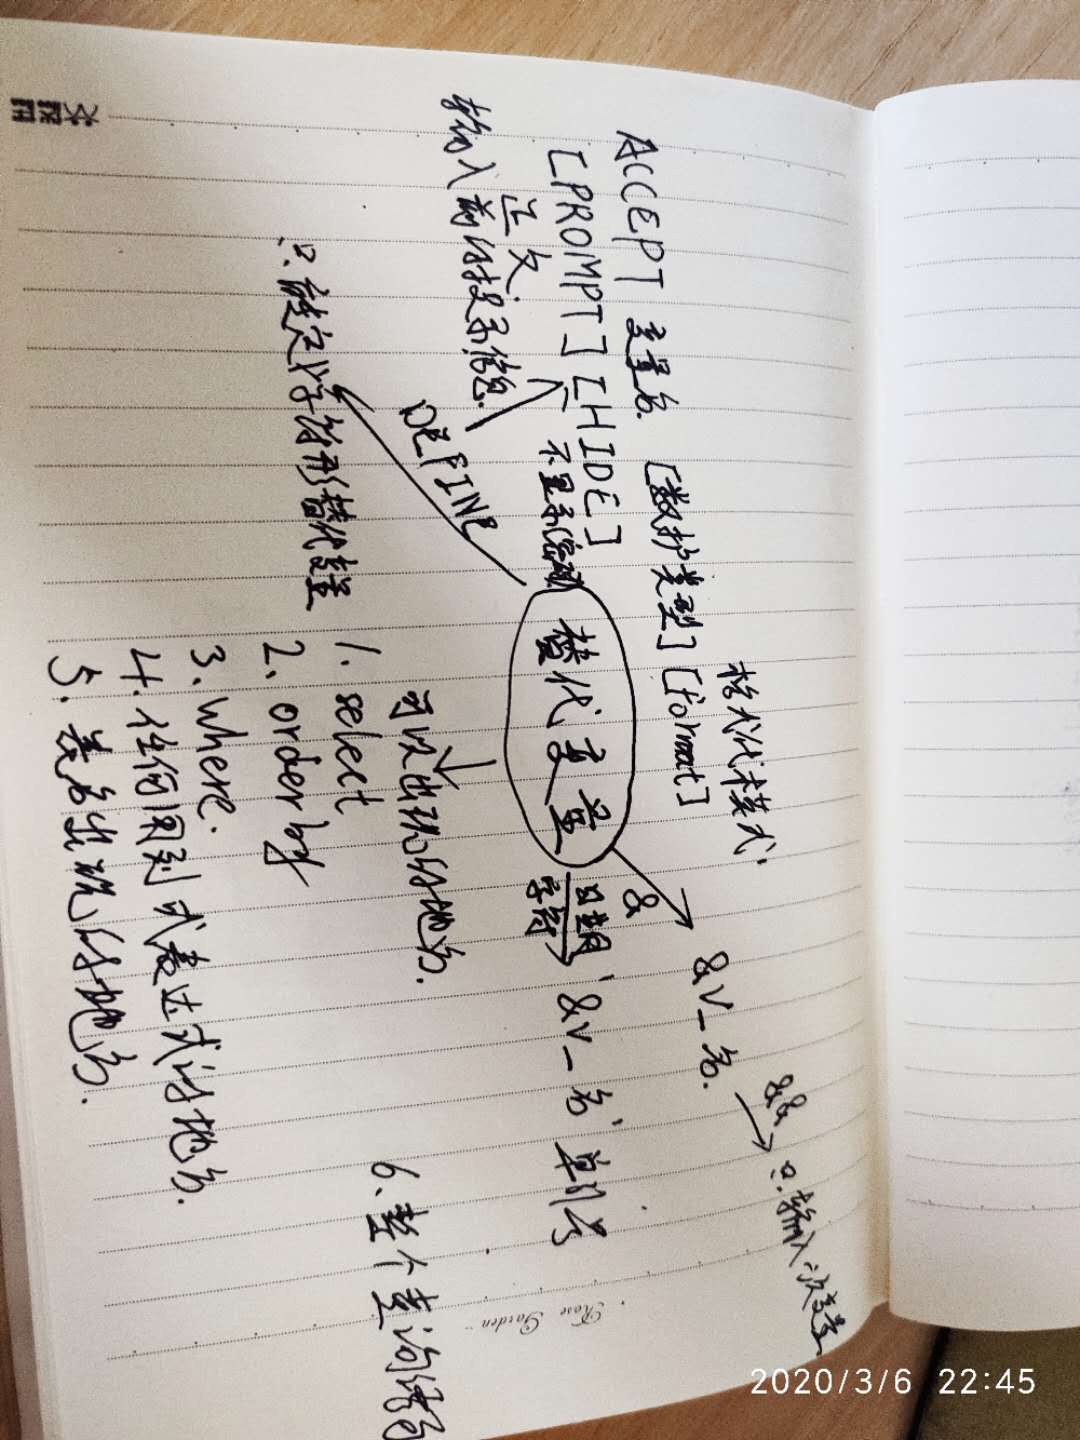 ACCEPT 变量名. [数据类型] [format]
格式化模式.
[PROMPT] [HIDE]
正文.
不显示
输入前的提示信息.
DEFINE
只.能定义字符形替代变量
替代变量
&
&V_名.
&&
只.输入一次变量
日期
字符
'&V_名' 单引号
可以出现的地方.
1. select
2. order by
3. where.
4. 任何列式表达式的地方.
5. 表名出现的地方.
6. 整个查询语句
Rose Garden
2020/3/6 22:45